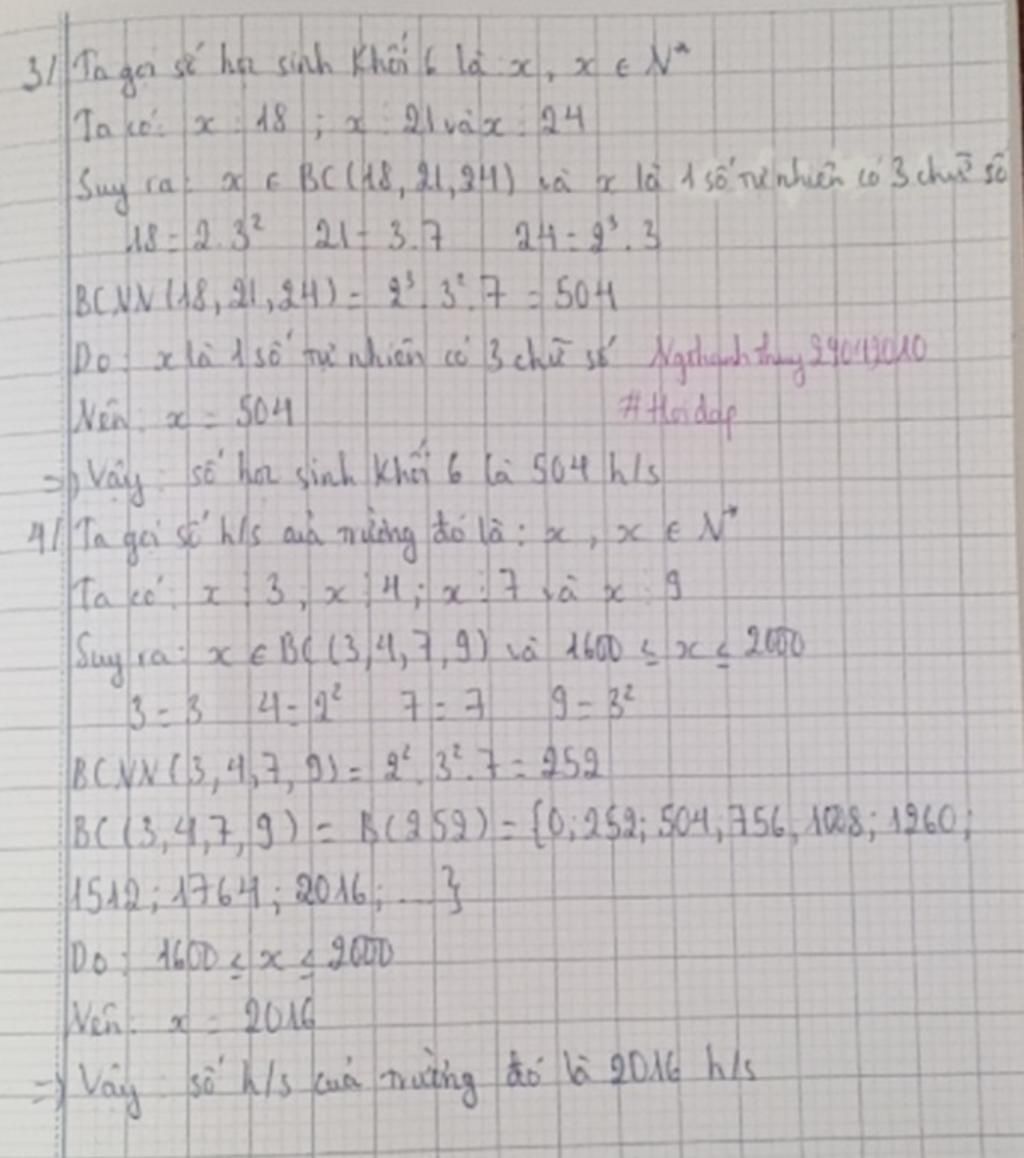 3/ Ta gọi số học sinh khối 6 là x, x ∈ N*
Ta có: x ⋮ 18 ; x ⋮ 21 và x ⋮ 24
Suy ra: x ∈ BC(18, 21, 24) và x là 1 số tự nhiên có 3 chữ số
18 = 2.3² 21 = 3.7 24 = 2³.3
BCNN(18, 21, 24) = 2³.3².7 = 504
Do: x là 1 số tự nhiên có 3 chữ số
Nên: x = 504 #Hoidap
=> Vậy: số học sinh khối 6 là 504 h/s
4/ Ta gọi số h/s của trường đó là: x, x ∈ N*
Ta có: x ⋮ 3, x ⋮ 4; x ⋮ 7 và x ⋮ 9
Suy ra: x ∈ BC(3, 4, 7, 9) và 1600 ≤ x ≤ 2000
3 = 3 4 = 2² 7 = 7 9 = 3²
BCNN(3, 4, 7, 9) = 2².3².7 = 252
BC(3, 4, 7, 9) = B(252) = {0; 252; 504; 756; 1008; 1260;
1512; 1764; 2016; ...}
Do: 1600 ≤ x ≤ 2000
Nên: x = 2016
=> Vậy: số h/s của trường đó là 2016 h/s